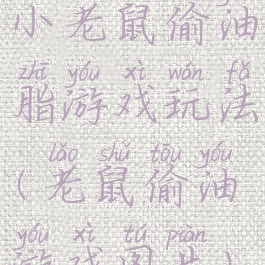 小老鼠偷油
zhī yóu xì wán fǎ
脂游戏玩法
lǎo shǔ tōu yóu
(老鼠偷油
yóu xì tú piàn
游戏图片)